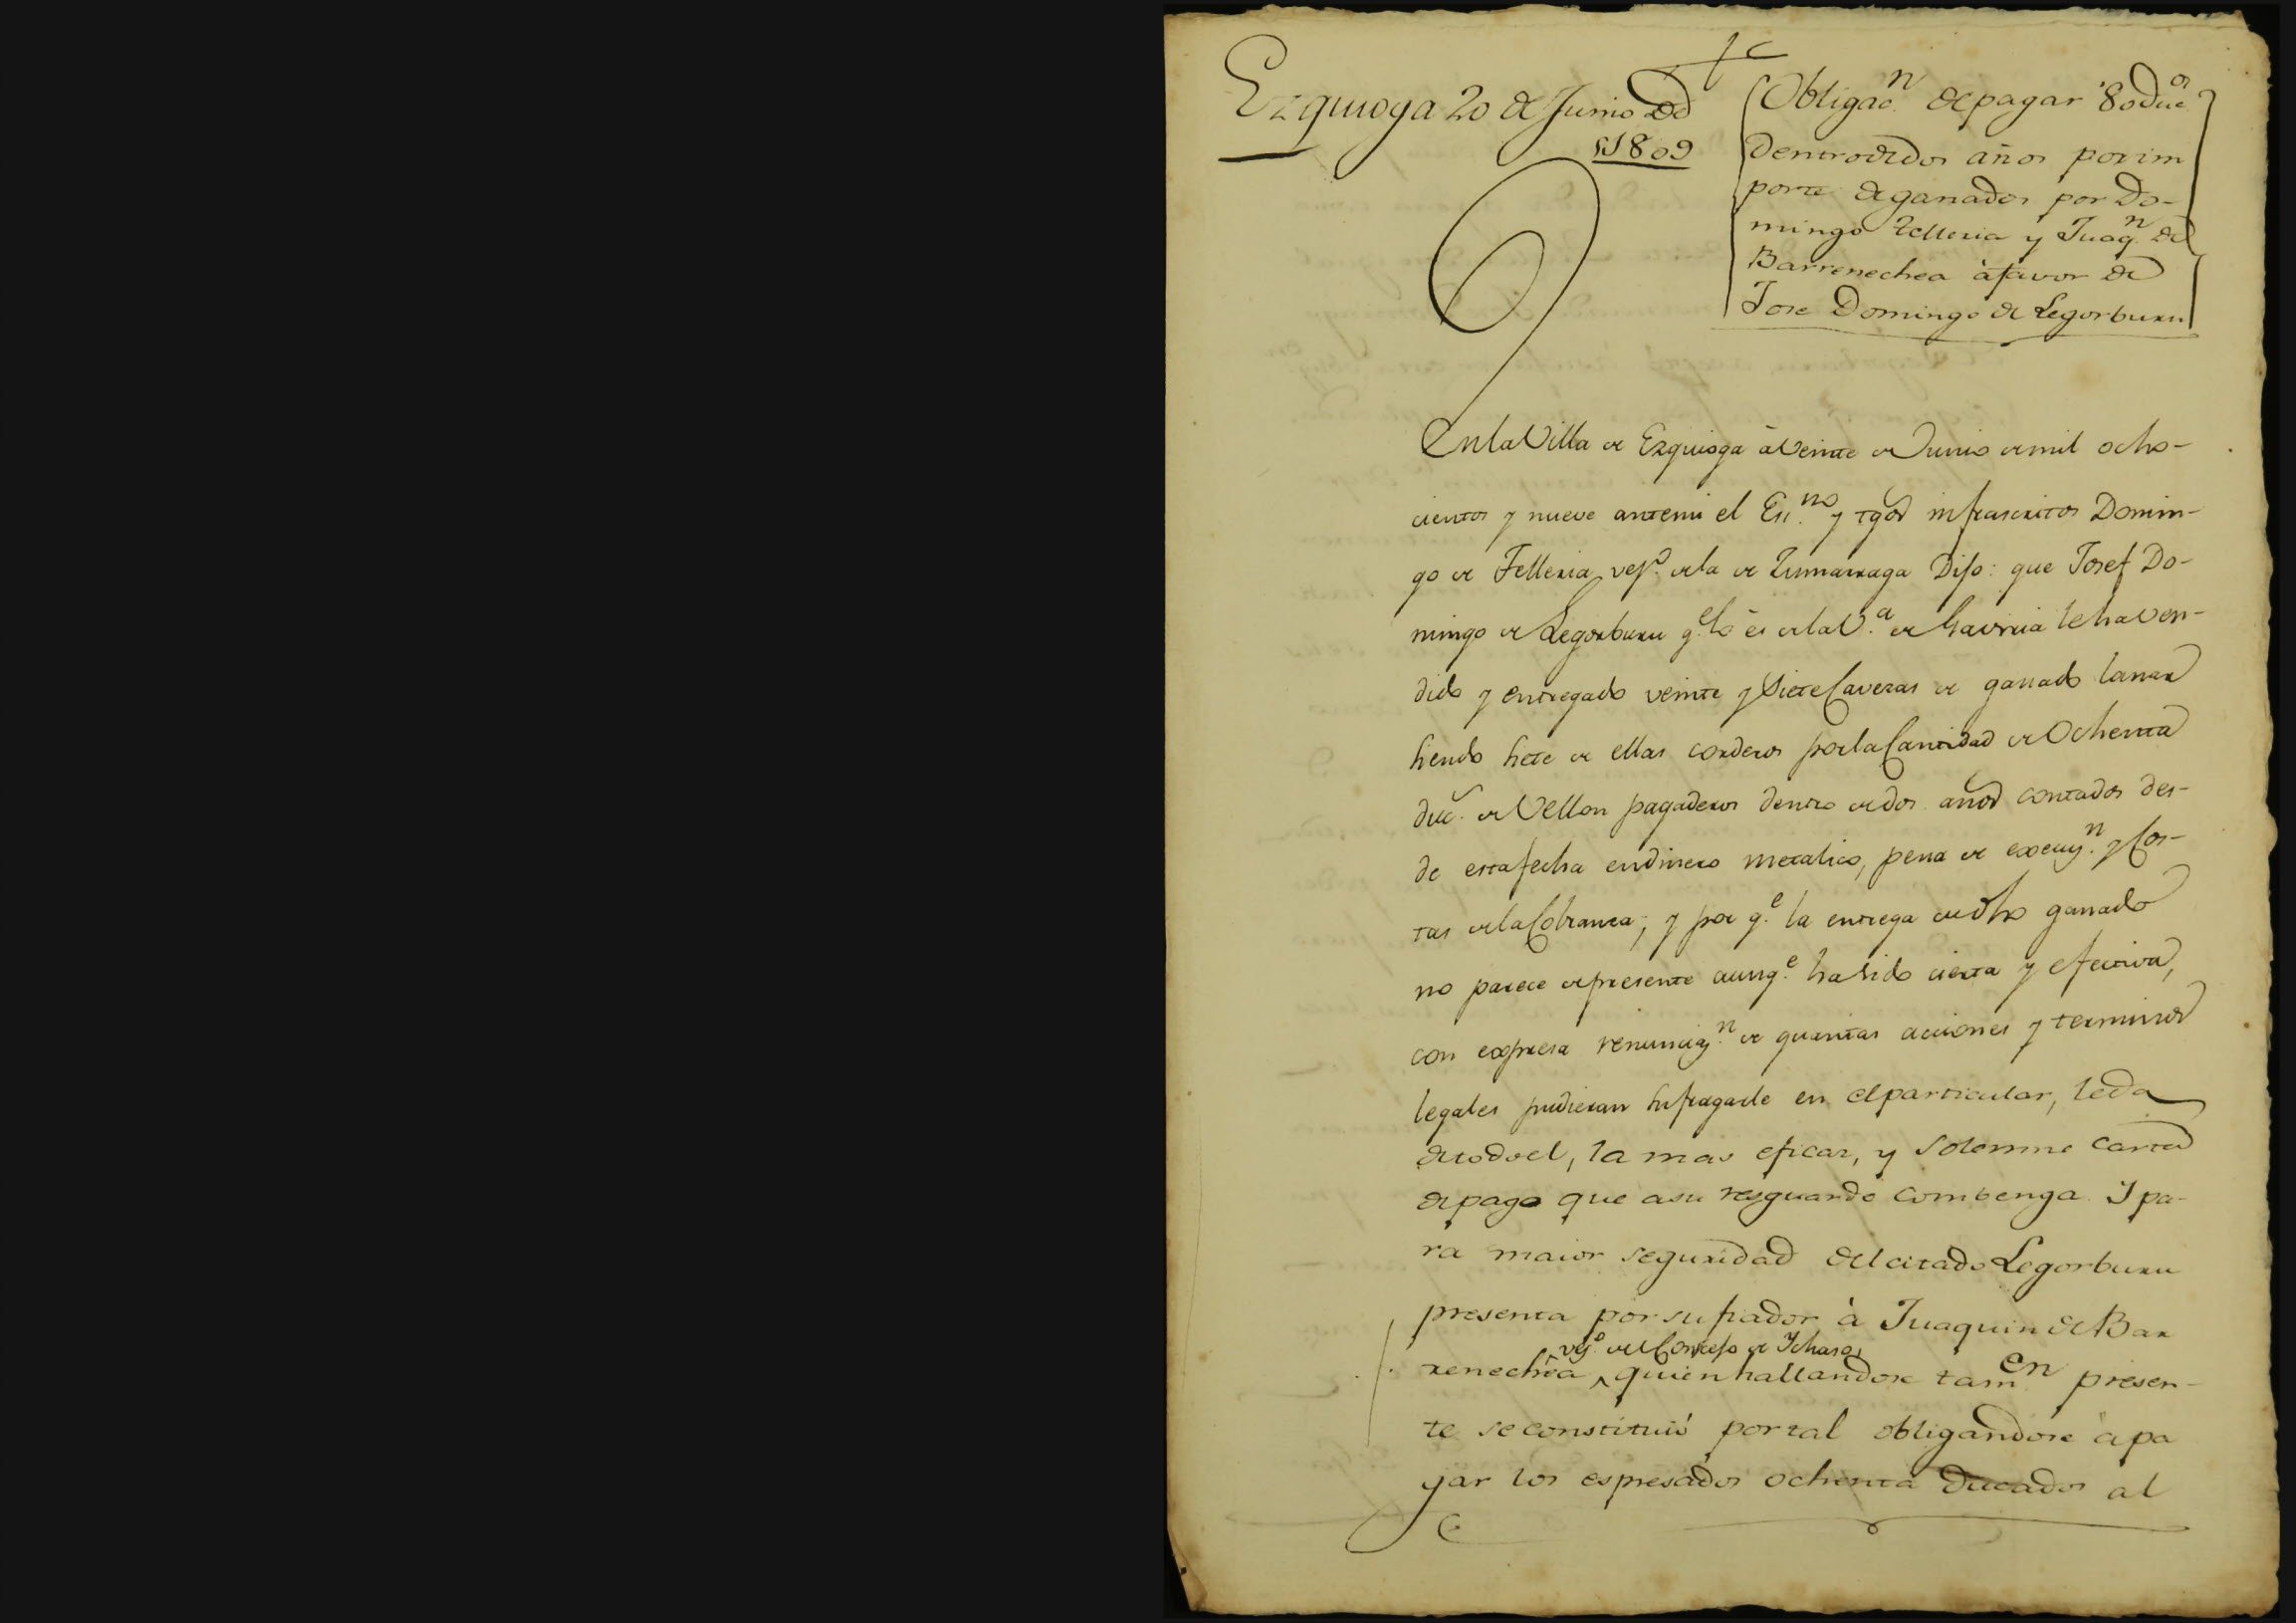 Ezquioga 20 de Junio de
1809
Obligac.n de pagar 80 duc.os
dentro de dos años por im
porte de ganados por Do-
mingo Telleria y Juaq.n de
Barrenechea à favor de
Jose Domingo de Legorburu
En la Villa de Ezquioga à Veinte de Junio de mil ocho-
cientos y nueve ante mi el Es.no y tgos infrascritos Domin-
go de Telleria vez.o de la de Zumarraga Dijo: que Josef Do-
mingo de Legorburu q.e lo es de la V.a de Gaviria le ha ven-
dido y entregado veinte y Siete Cavezas de ganado lanar
siendo siete de ellas corderos por la Cantidad de Ochenta
duc.s de Vellon pagaderos dentro de dos años contados des-
de esta fecha en dinero metalico, pena de execuz.n y Cos-
tas de la Cobranza; y por q.e la entrega de dho ganado
no parece de presente aunq.e ha sido cierta y efectiva,
con expresa renunciaz.n de quantas acciones y terminos
legales pudieran sufragarle en el particular, le da
de todo el, la mas eficaz, y solemne carta
de pago que a su resguardo combenga. Y pa-
ra maior seguridad del citado Legorburu
presenta por su fiador à Juaquin de Bar
vez.o del Concejo de Ychaso,
renechea quien hallandose tam.en presen-
te se constituió por tal obligandose à pa
gar los espresados ochenta ducados al